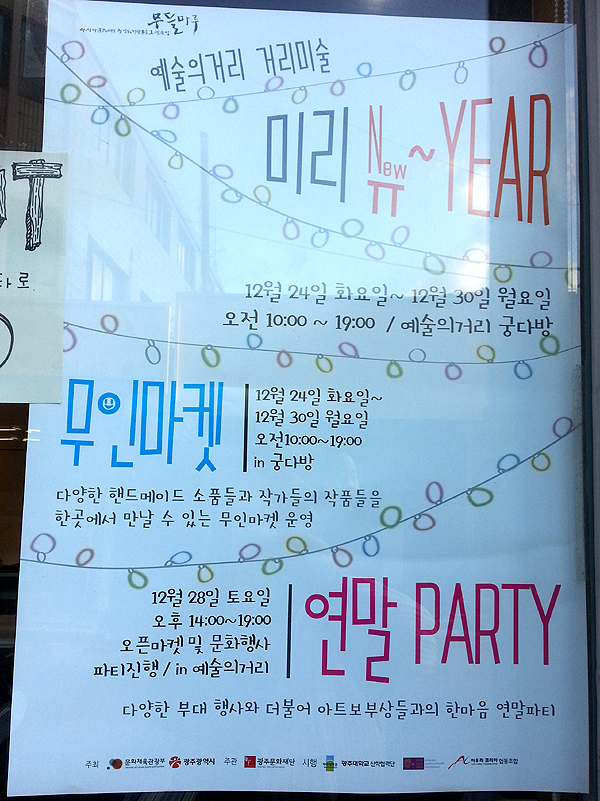 무들마루
예술의거리 거리미술
미리 New뉴~YEAR
12월 24일 화요일~ 12월 30일 월요일
오전 10:00 ~ 19:00 / 예술의거리 궁다방
다로.
무인마켓
12월 24일 화요일~
12월 30일 월요일
오전10:00~19:00
in 궁다방
다양한 핸드메이드 소품들과 작가들의 작품들을
한곳에서 만날 수 있는 무인마켓 운영
12월 28일 토요일
오후 14:00~19:00
오픈마켓 및 문화행사
파티진행 / in 예술의거리
연말 PARTY
다양한 부대 행사와 더불어 아트보부상들과의 한마음 연말파티
주최 문화체육관광부 광주광역시 주관 광주문화재단 시행 광주대학교 산학협력단 협동조합